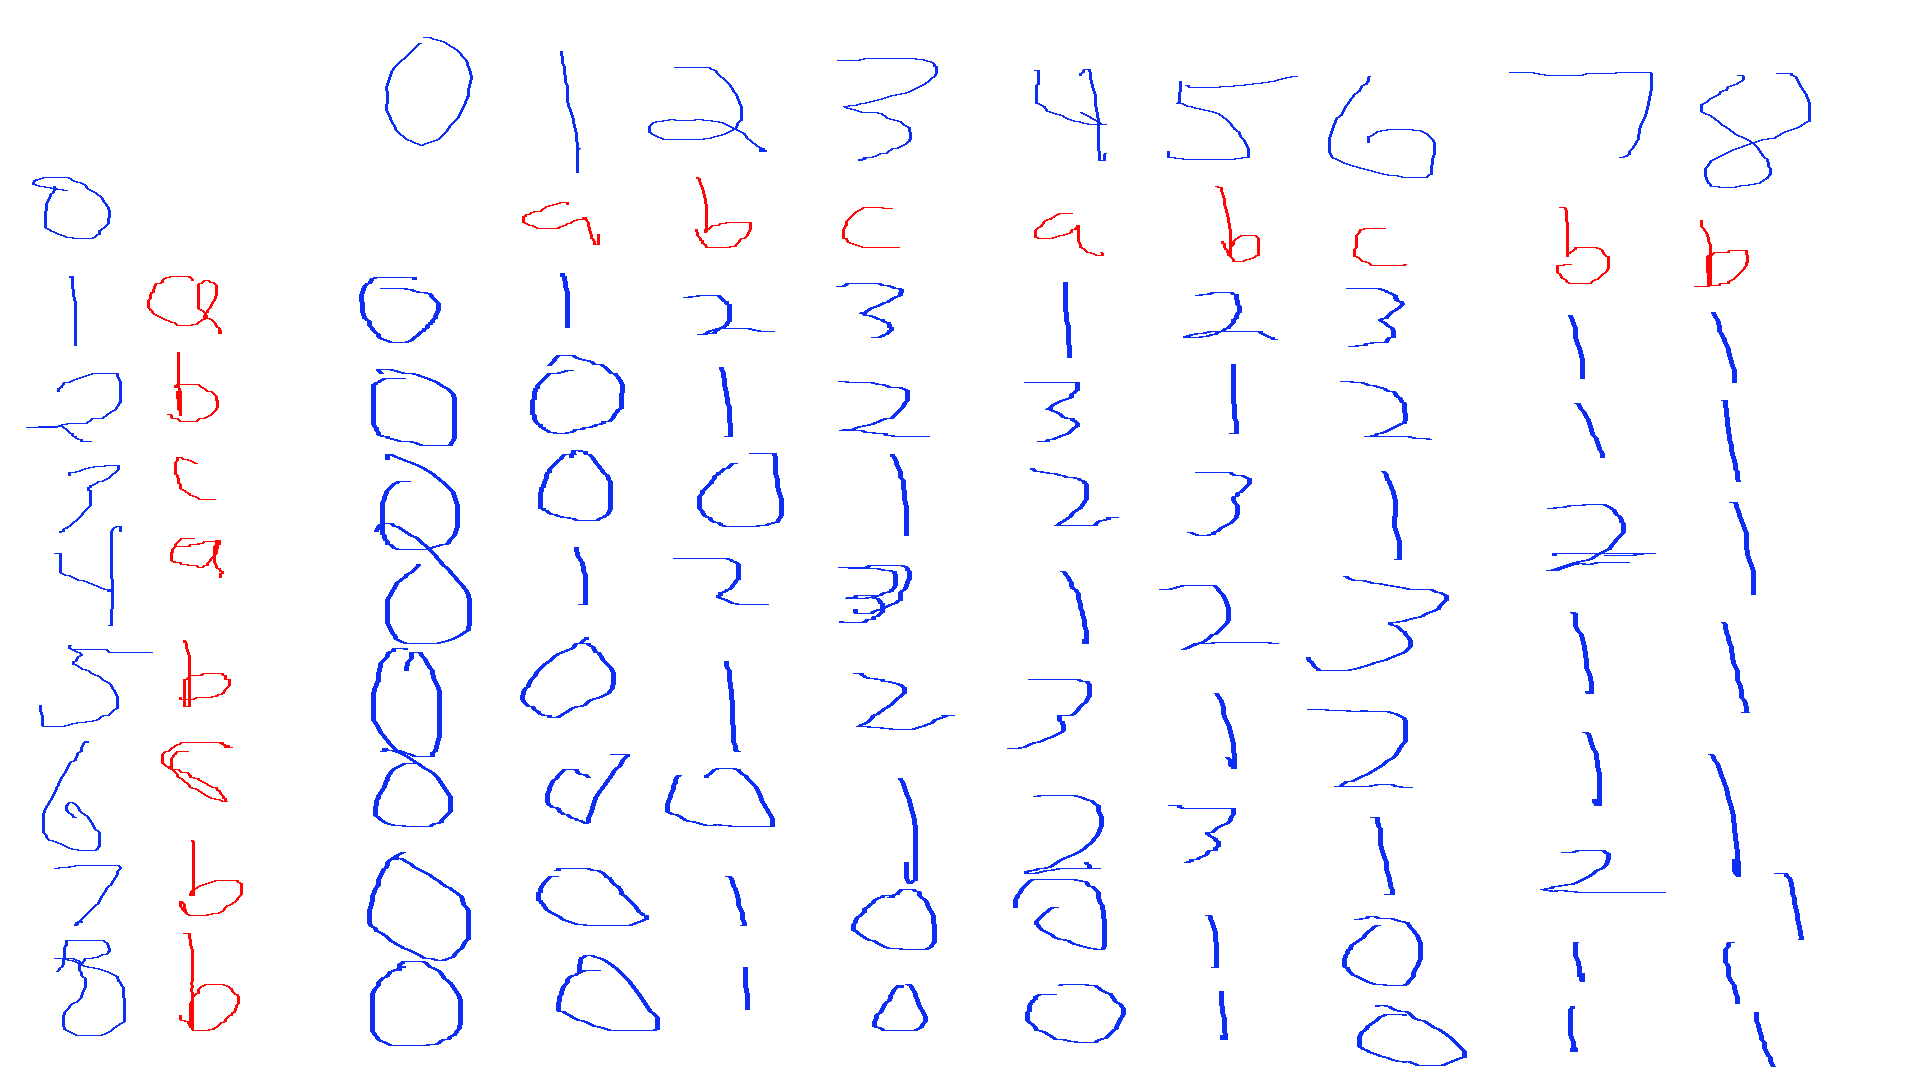 0 1 2 3 4 5 6 7 8
0 a b c a b c b b
1 a 0 1 2 3 1 2 3 1 1
2 b 0 0 1 2 3 1 2 1 1
3 c 0 0 0 1 2 3 1 2 1
4 a 0 1 2 3 1 2 3 1 1
5 b 0 0 1 2 3 1 2 1 1
6 c 0 0 0 1 2 3 1 2 1
7 b 0 0 1 0 0 1 0 1 1
8 b 0 0 1 0 0 1 0 1 1